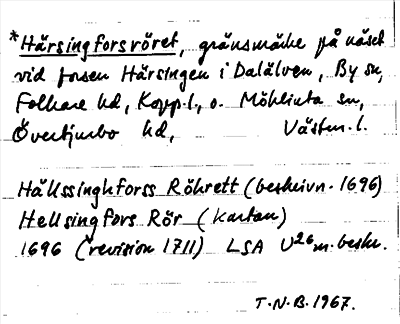 *Härsingforsröret, gränsmärke på näset
vid forsen Härsingen i Dalälven, By sn,
Folkare hd, Kopp.l., o. Möklinta sn,
Övertjurbo hd, Västm.l.
Hällssinghforss Röhrett (beskrivn. 1696)
Hellsingfors Rör (Kartan)
1696 (revision 1711) LSA U26 m. beskr.
T.N.B. 1967.